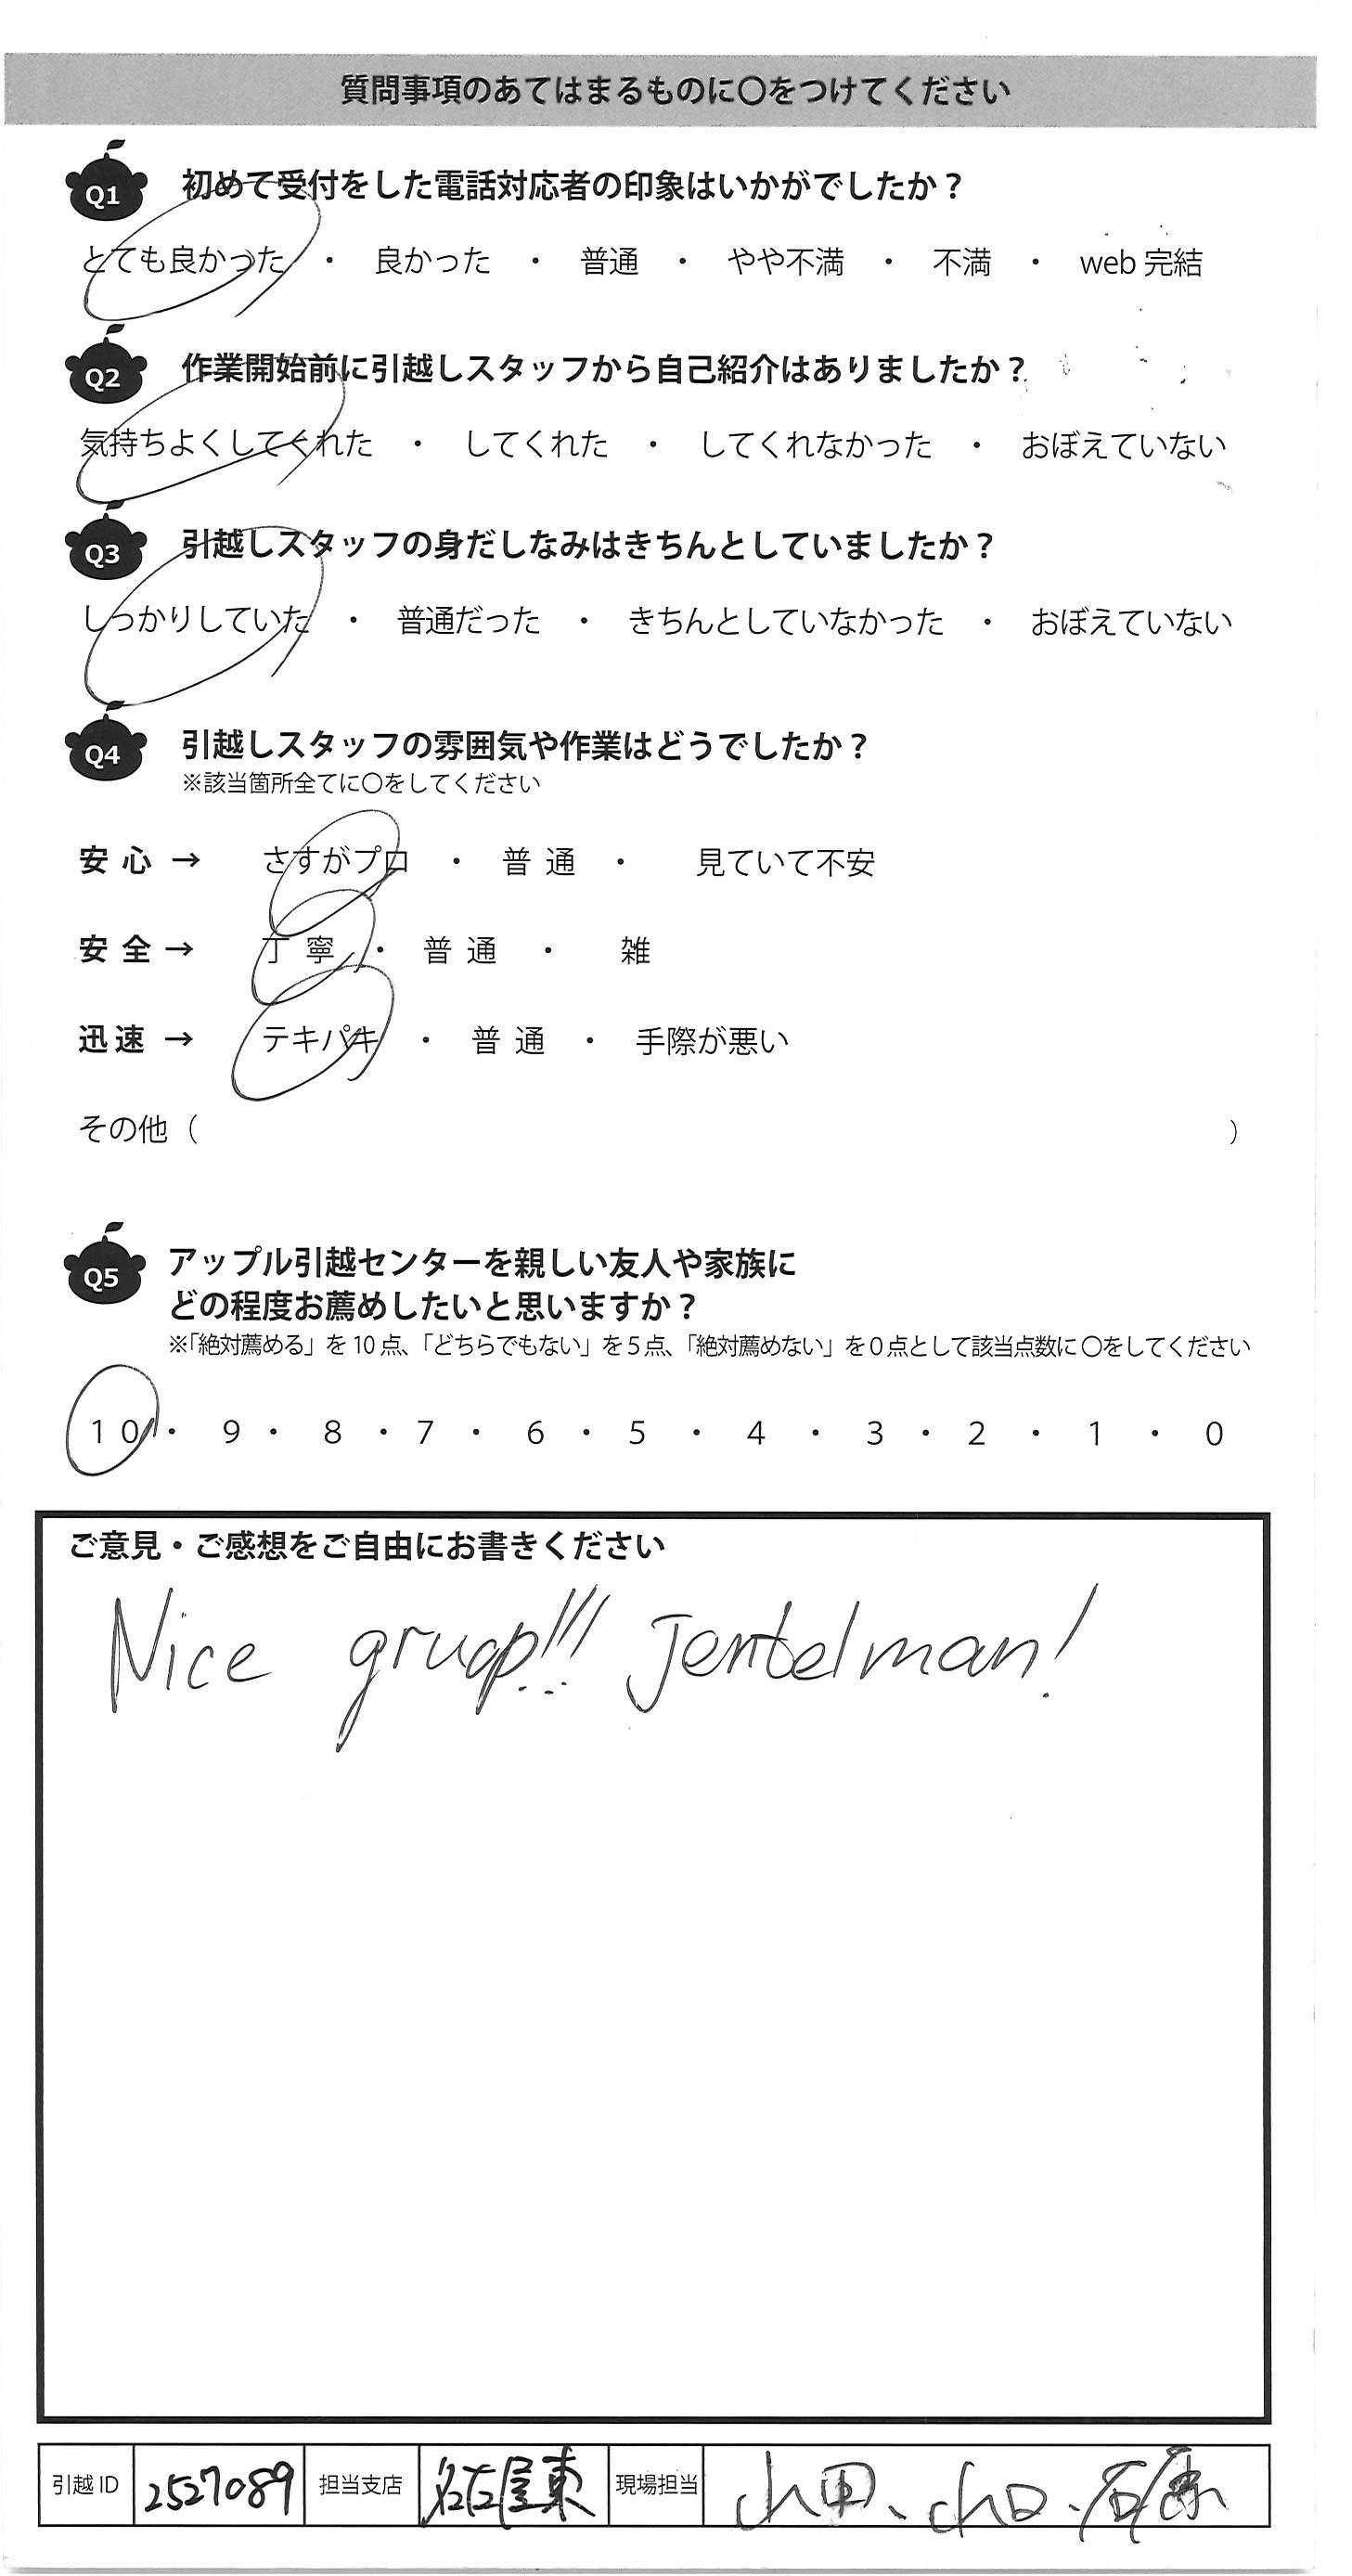 質問事項のあてはまるものに〇をつけてください
Q1 初めて受付をした電話対応者の印象はいかがでしたか？
とても良かった ・ 良かった ・ 普通 ・ やや不満 ・ 不満 ・ web 完結
Q2 作業開始前に引越しスタッフから自己紹介はありましたか？
気持ちよくしてくれた ・ してくれた ・ してくれなかった ・ おぼえていない
Q3 引越しスタッフの身だしなみはきちんとしていましたか？
しっかりしていた ・ 普通だった ・ きちんとしていなかった ・ おぼえていない
Q4 引越しスタッフの雰囲気や作業はどうでしたか？
※該当箇所全てに〇をしてください
安心 → さすがプロ ・ 普通 ・ 見ていて不安
安全 → 丁寧 ・ 普通 ・ 雑
迅速 → テキパキ ・ 普通 ・ 手際が悪い
その他（ ）
Q5 アップル引越センターを親しい友人や家族に
どの程度お薦めしたいと思いますか？
※「絶対薦める」を 10 点、「どちらでもない」を 5 点、「絶対薦めない」を 0 点として該当点数に 〇をしてください
10 ・ 9 ・ 8 ・ 7 ・ 6 ・ 5 ・ 4 ・ 3 ・ 2 ・ 1 ・ 0
ご意見・ご感想をご自由にお書きください
Nice gruop!!! Jentelman!
引越 ID 2527089 担当支店 名古屋東 現場担当 山田、山口、石原